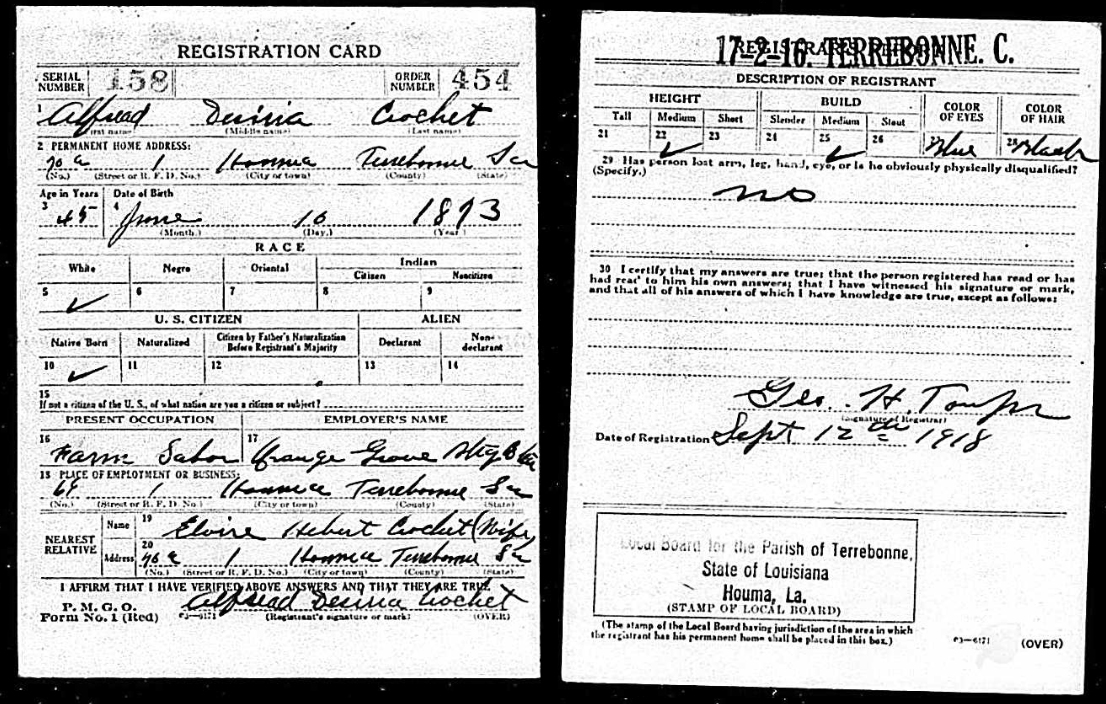 REGISTRATION CARD
SERIAL NUMBER 158 ORDER NUMBER 454
1 Alfread Desiria Crochet
(First name) (Middle name) (Last name)
2 PERMANENT HOME ADDRESS:
70 a 1 Houma Terrebonne La
(No.) (Street or R. F. D. No.) (City or town) (County) (State)
Age in Years Date of Birth
3 45 4 June 10 1873
(Month.) (Day.) (Year.)
RACE
White Negro Oriental Indian
Citizen Noncitizen
5 ✓ 6 7 8 9
U. S. CITIZEN ALIEN
Native Born Naturalized Citizen by Father's Naturalization Before Registrant's Majority Declarant Non-declarant
10 ✓ 11 12 13 14
15
If not a citizen of the U. S., of what nation are you a citizen or subject?
PRESENT OCCUPATION EMPLOYER'S NAME
16 Farm Labor 17 Orange Grove
18 PLACE OF EMPLOYMENT OR BUSINESS:
69 1 Houma Terrebonne La
(No.) (Street or R. F. D. No.) (City or town) (County) (State)
NEAREST RELATIVE Name 19 Elvire Hebert Crochet (Wife
Address 20 70 a 1 Houma Terrebonne La
(No.) (Street or R. F. D. No.) (City or town) (County) (State)
I AFFIRM THAT I HAVE VERIFIED ABOVE ANSWERS AND THAT THEY ARE TRUE.
P. M. G. O.
Form No. 1 (Red) 03—6171 Alfread Desiria Crochet
(Registrant's signature or mark) (OVER)
REGISTRAR'S REPORT
17-2-16. TERREBONNE. C.
DESCRIPTION OF REGISTRANT
HEIGHT BUILD COLOR OF EYES COLOR OF HAIR
Tall Medium Short Slender Medium Stout
21 22 ✓ 23 24 25 ✓ 26 27 Blue 28 Black
29 Has person lost arm, leg, hand, eye, or is he obviously physically disqualified?
(Specify.)
no
30 I certify that my answers are true; that the person registered has read or has
had read to him his own answers; that I have witnessed his signature or mark,
and that all of his answers of which I have knowledge are true, except as follows:
Geo. H.
(Signature of Registrar)
Date of Registration Sept 12th 1918
Local Board for the Parish of Terrebonne,
State of Louisiana
Houma, La.
(STAMP OF LOCAL BOARD)
(The stamp of the Local Board having jurisdiction of the area in which
the registrant has his permanent home shall be placed in this box.)
03—6171 (OVER)